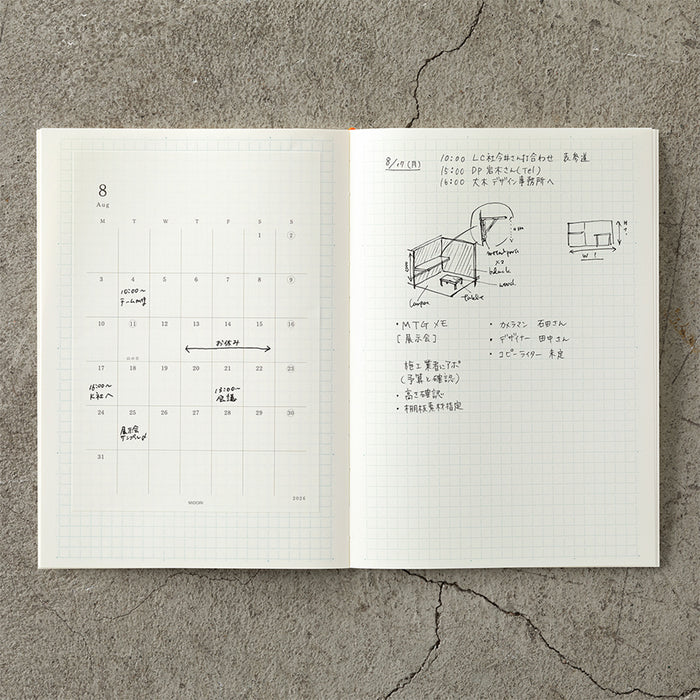 8
Aug
M T W T F S S
1 2
3 4 5 6 7 8 9
10:00〜
チームMTG
10 11 12 13 14 15 16
山の日
お休み
17 18 19 20 21 22 23
15:00〜
K社へ
13:00〜
会議
24 25 26 27 28 29 30
展示会
31
MIDORI
2026
8/17(月)
10:00 LC社今井さん打合わせ 表参道
15:00 DP岩木さん(Tel)
16:00 大木デザイン事務所へ
black
wood
table
W?
H?
・MTGメモ
[展示会]
施工業者にアポ
(予算と確認)
・高さ確認
・棚板素材指定
・カメラマン 石田さん
・デザイナー 田中さん
・コピーライター 未定